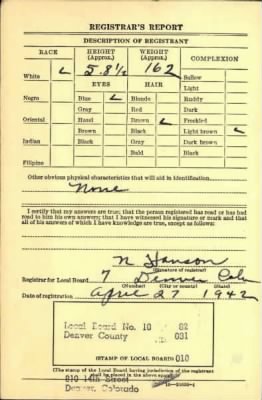 REGISTRAR'S REPORT
DESCRIPTION OF REGISTRANT
RACE HEIGHT (Approx.) WEIGHT (Approx.) COMPLEXION
White 5. 8 1/2 162 Sallow
Light
EYES HAIR
Negro Blue Blonde Ruddy
Gray Red Dark
Oriental Hazel Brown Freckled
Brown Black Light brown
Indian Black Gray Dark brown
Bald Black
Filipino
Other obvious physical characteristics that will aid in identification
None
I certify that my answers are true; that the person registered has read or has had
read to him his own answers; that I have witnessed his signature or mark and that
all of his answers of which I have knowledge are true, except as follows:
N Hanson
(Signature of registrar)
Registrar for Local Board 7 Denver Colo
(Number) (City or county) (State)
Date of registration April 27 1942
Local Board No. 10 82
Denver County 031
010
(STAMP OF LOCAL BOARD)
(The stamp of the Local Board having jurisdiction of the registrant
shall be placed in the above space)
810 14th Street
Denver, Colorado